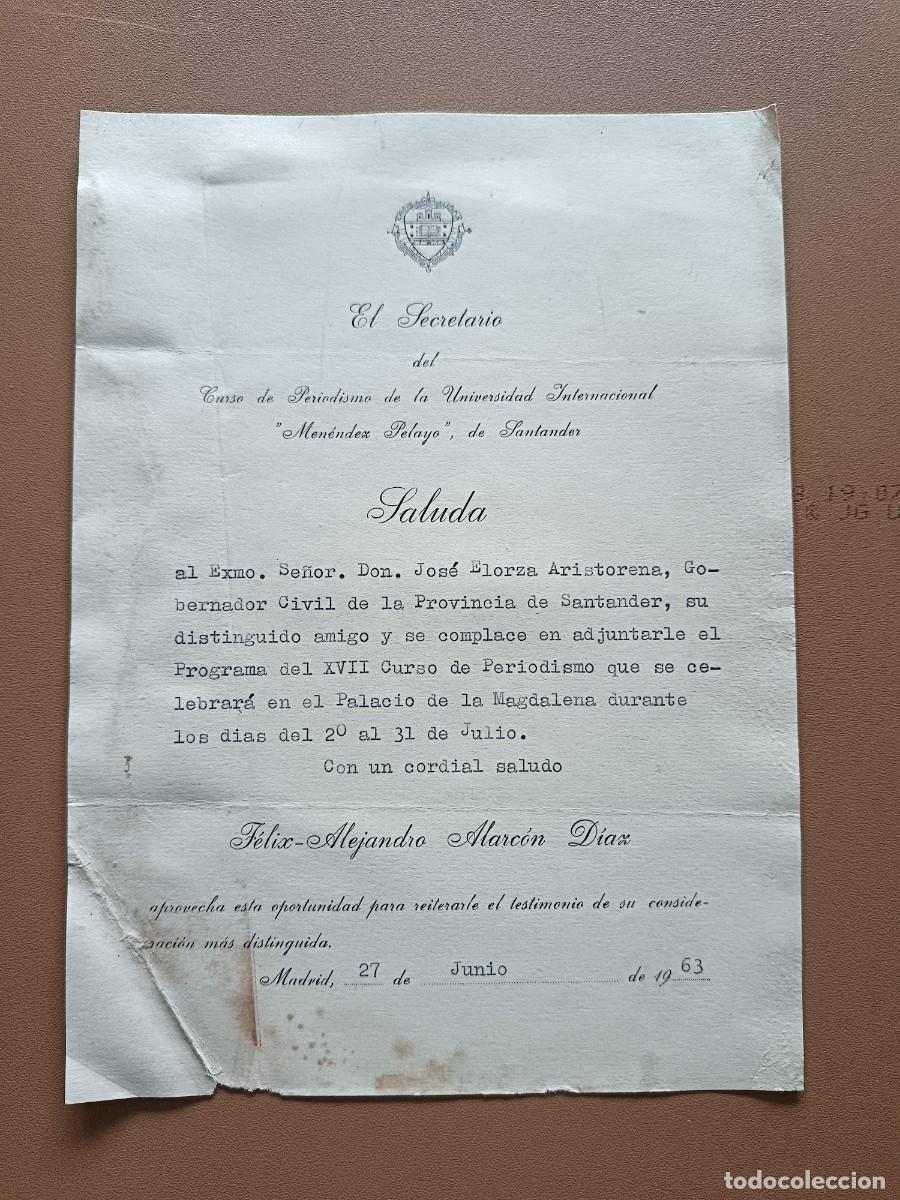 El Secretario
del
Curso de Periodismo de la Universidad Internacional
"Menéndez Pelayo", de Santander
Saluda
al Exmo. Señor. Don. José Elorza Aristorena, Go-
bernador Civil de la Provincia de Santander, su
distinguido amigo y se complace en adjuntarle el
Programa del XVII Curso de Periodismo que se ce-
lebrará en el Palacio de la Magdalena durante
los dias del 20 al 31 de Julio.
Con un cordial saludo
Félix-Alejandro Alarcón Díaz
aprovecha esta oportunidad para reiterarle el testimonio de su conside-
ración más distinguida.
Madrid, 27 de Junio de 1963
todocoleccion